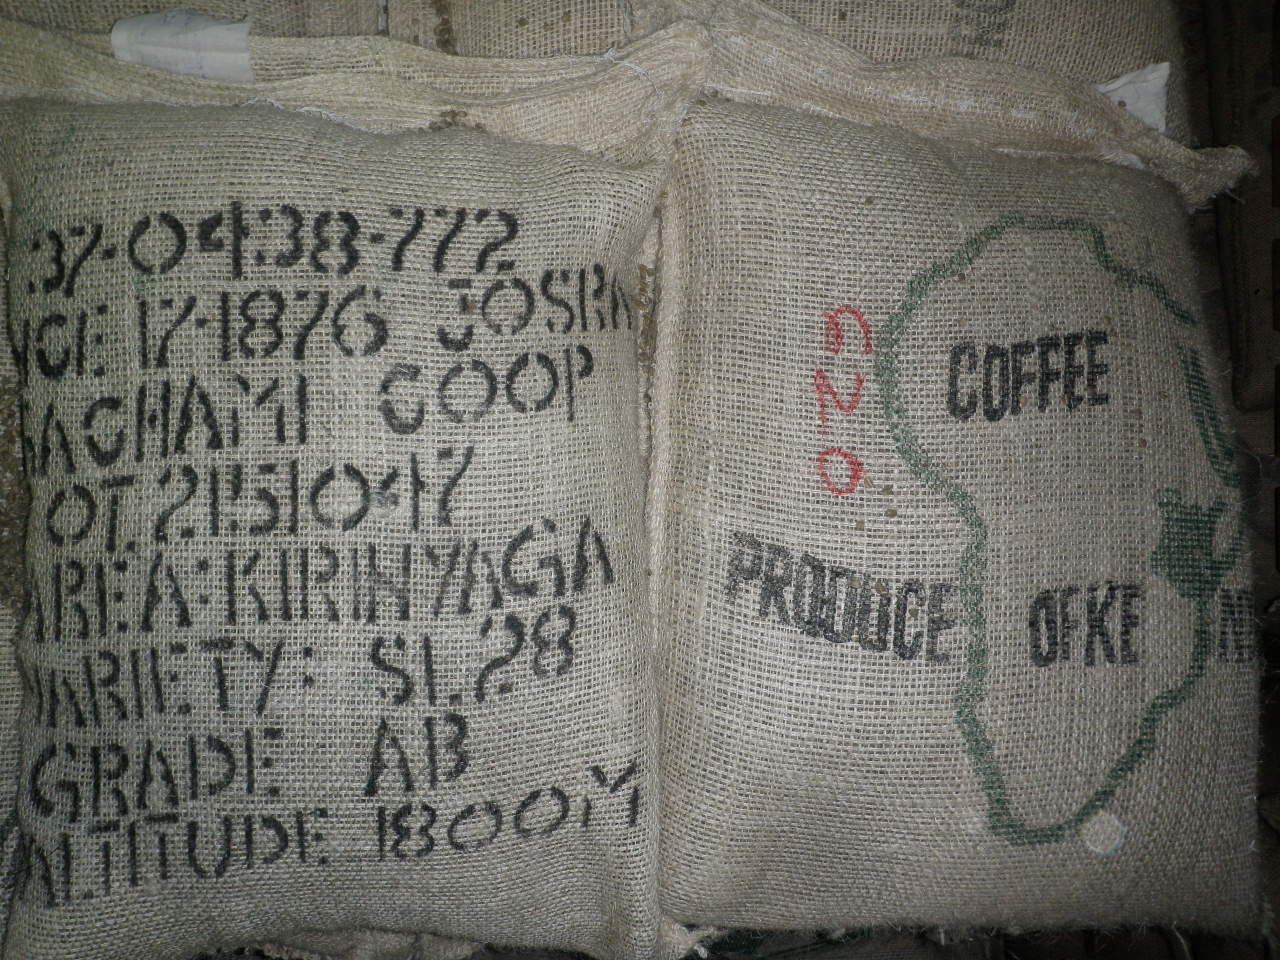 37-0438-772
NCE 17-1876 JOSRA
BACHAMI COOP
OT. 2151047
AREA: KIRINYAGA
VARIETY: SL28
GRADE AB
ALTITUDE 1800M
029
COFFEE
PRODUCE OF KE